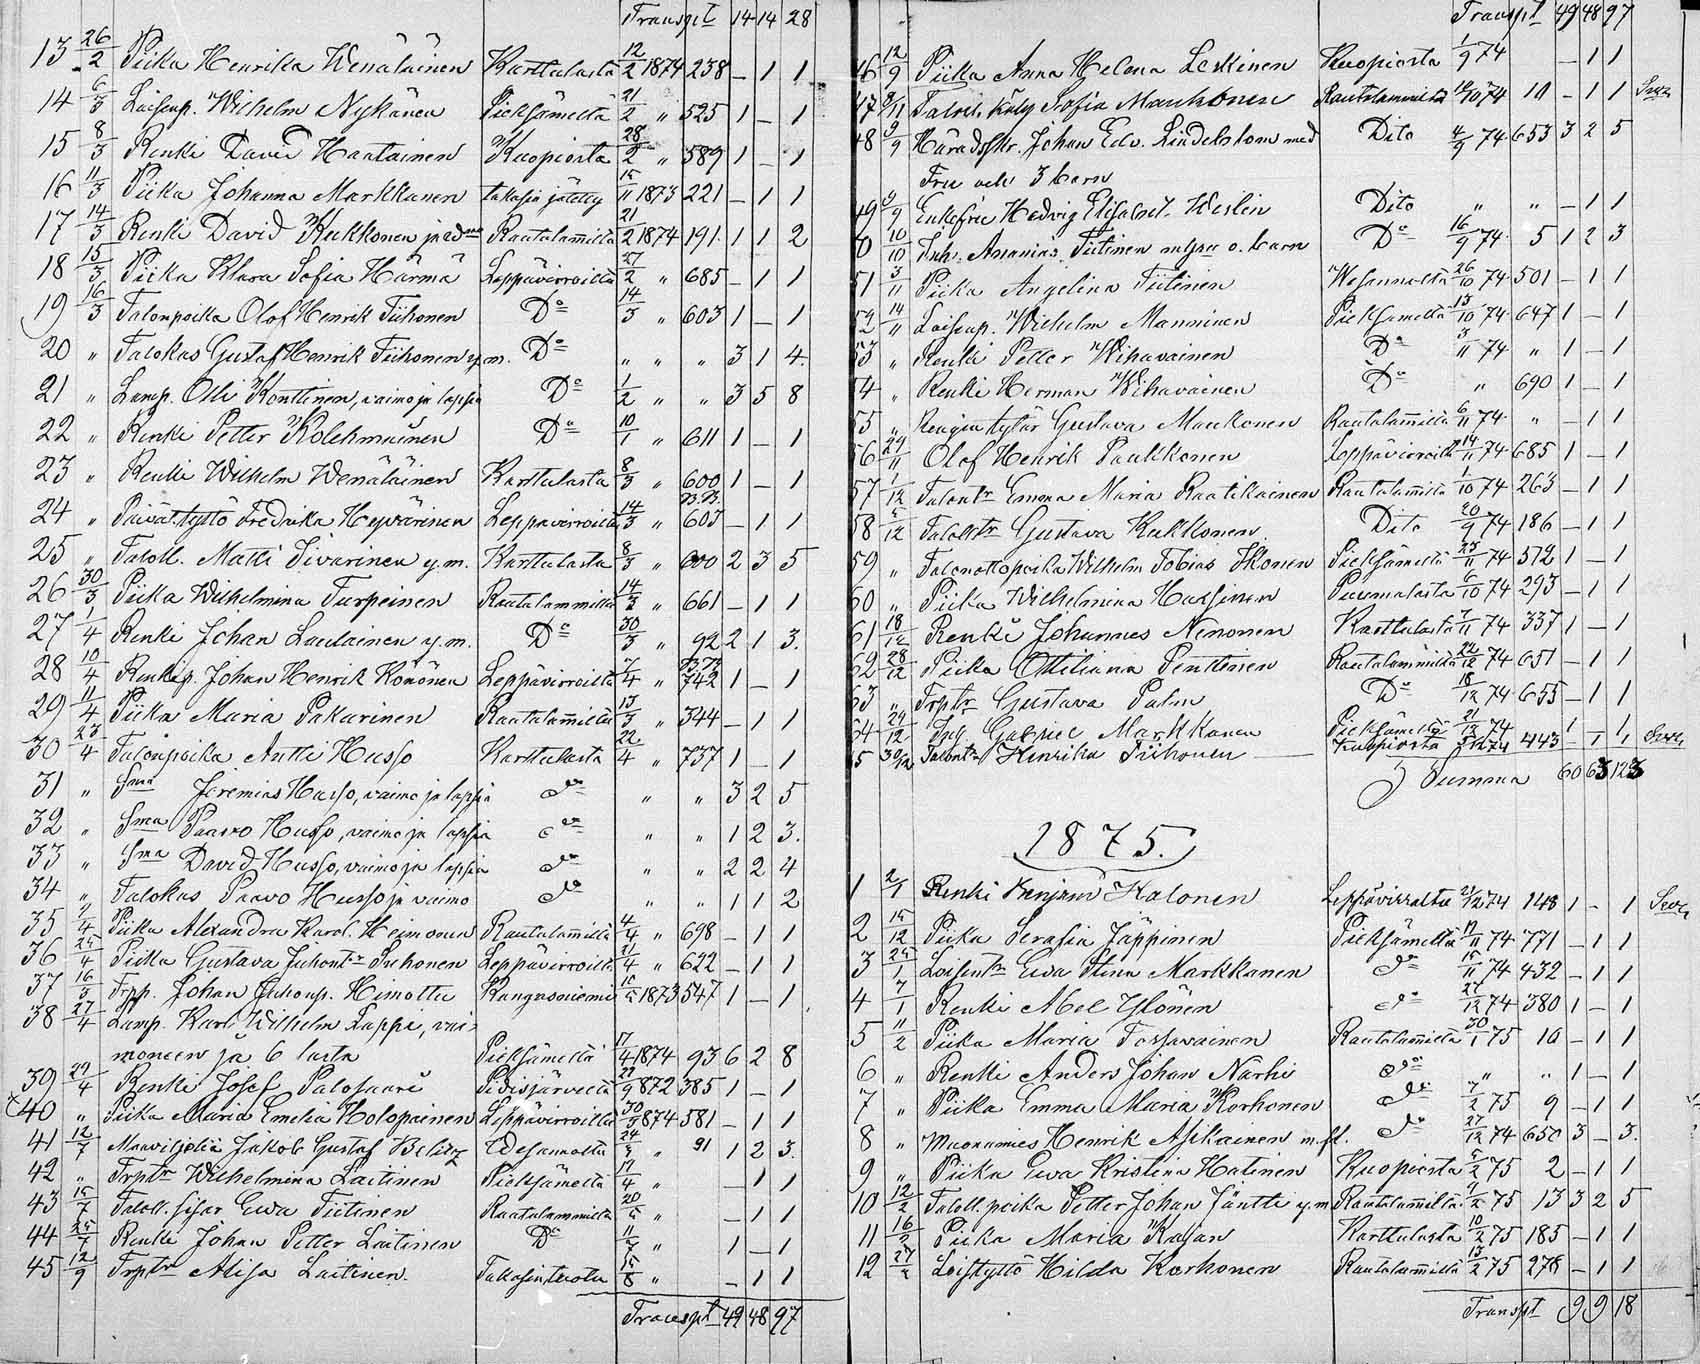 Transpt 14 14 28
13 26/2 Piika Henrika Wenäläinen Karttulasta 12/2 1874 238 – 1 1
14 6/3 Loisenp. Wilhelm Nykänen Pieksämeltä 21/2 " 525 1 – 1
15 8/3 Renki David Hantainen Kuopiosta 28/2 " 589 1 – 1
16 11/3 Piika Johanna Markkanen takasin jätetty 15/11 1873 221 – 1 1
17 14/3 Renki David Kukkonen ja vmo Rautalammilta 21/2 1874 191 1 1 2
18 15/3 Piika Klara Sofia Härmä Leppävirroilta 27/2 " 685 – 1 1
19 16/3 Talonpoika Olof Henrik Tiihonen Do 14/3 " 603 1 – 1
20 " Talokas Gustaf Henrik Tiihonen y.m. Do " " " 3 1 4.
21 " Lamp. Olli Konttinen, vaimo ja lapsia Do 1/2 " " 3 5 8
22 " Renki Petter Kolehmainen Do 10/1 " 611 1 – 1
23 " Renki Wilhelm Wenäläinen Karttulasta 8/3 " 600 1 – 1
24 " Päivät. tyttö Fredrika Heyvärinen Leppävirroilta 14/3 " 603 – 1 1
25 " Taloll. Matti Sivarinen y.m. Karttulasta 8/3 " 600 2 3 5
26 30/3 Piika Wilhelmina Turpeinen Rautalammilta 14/3 " 661 – 1 1
27 1/4 Renki Johan Laulainen y.m. Do 30/3 " 92 2 1 3.
28 10/4 Renkip. Johan Henrik Könönen Leppävirroilta 7/4 " 742 1 – 1
29 11/4 Piika Maria Pakarinen Rautalammilta 13/3 " 344 – 1 1
30 23/4 Talonpoika Antti Husso Karttulasta 22/4 " 737 1 – 1
31 " Sma Jeremias Husso, vaimo ja lapsia do " " 3 2 5
32 " Sma Paavo Husso, vaimo ja lapsia do " " 1 2 3.
33 " Sma David Husso, vaimo ja lapsia do " " 2 2 4
34 " Talokas Paavo Husso ja vaimo do " " 1 1 2
35 7/4 Piika Alexandra Karol. Heimonen Rautalammilta 4/4 " 698 – 1 1
36 25/4 Piika Gustava Juhontr Tuhonen Leppävirroilt. 21/4 " 622 – 1 1
37 16/5 Frpp. Johan Juhonp. Himottu Kangasniemi 16/5 1873 547 1 – 1
38 27/4 Lamp. Karl Wilhelm Lappi, vai-
moneen ja 6 lasta Pieksämeltä 17/4 1874 93 6 2 8
39 29/4 Renki Josef Palosaari Pidisjärveltä 22/9 872 385 1 – 1
40 " Piika Maria Emelia Holopainen Leppävirroilta 30/3 874 581 – 1 1
41 12/7 Maaviljeliä Jakob Gustaf Belitz Wesannolta 24/5 " 91 1 2 3.
42 " Trptr Wilhelmina Laitinen Pieksämeltä 17/4 " – 1 1
43 15/7 Taloll. sisar Ewa Tiitinen Rautalammilta 20/5 " – 1 1
44 25/7 Renki Johan Petter Laitinen Do 11/7 " 1 – 1
45 12/9 Trptr Alisa Laitinen. Takasin tuotu 15/8 " – 1 1
Transpt 49 48 97
Transpt 49 48 97
46 12/9 Piika Anna Helena Leskinen Kuopiosta 1/9 74 – 1 1
47 9/11 Talol. käly Sofia Maukonen Rautalammilta 16/10 74 10 – 1 1
48 9/9 Häradsskr. Johan Edv. Lindebstom med Dito 4/9 74 653 3 2 5
Fru och 3 barn
49 9/9 Enkefru Hedvig Elisabet. Weslin Dito " " – 1 1
50 10/10 Inh. Ananias Tiitinen m hru o. barn Do 16/9 74 5 1 2 3
51 3/11 Piika Angelina Tiitinen Wesannolta 26/10 74 501 – 1 1
52 14/11 Loisenp. Wilhelm Manninen Pieksämeltä 15/10 74 647 1 – 1
53 " Renki Petter Wihavainen Do 3/11 74 " 1 – 1
54 " Renki Herman Wihavainen Do " 690 1 – 1
55 " Rengin tytär Gustava Maukonen Rautalammilta 6/11 74 " – 1 1
56 29/11 Olof Henrik Paukkonen Leppävirroilta 14/11 74 685 1 – 1
57 1/12 Talontr Emma Maria Raatikainen Rautalammilta 1/10 74 263 – 1 1
58 5/12 Talolltr Gustava Kukkonen Dito 20/9 74 186 – 1 1
59 " Talonottopoika Wilhelm Tobias Ikonen Pieksämeltä 23/11 74 572 1 – 1
60 " Piika Wilhelmina Hussinen Puumalasta 6/10 74 293 – 1 1
61 18/12 Renki Johannes Nenonen Karttulasta 7/11 74 337 1 – 1
62 28/12 Piika Ottiliana Penttinen Rautalammilta 22/12 74 651 – 1 1
63 " Trptr Gustava Palm Do 18/12 74 655 – 1 1
64 29/12 Inl. Gabriel Markkanen Pieksämeltä 21/12 74 1 – 1
65 30/12 Talontr Henrika Tiihonen Kuopiosta 74 443 – 1 1
Summa 60 63 123
1875.
1 2/1 Renki Benjam Halonen Leppävirralta 21/12 74 148 1 – 1
2 15/12 Piika Serafia Jäppinen Pieksämeltä 19/11 74 771 – 1 1
3 25/1 Loisentr Ewa Stina Markkanen do 15/11 74 432 – 1 1
4 7/1 Renki Abel Ylönen do 27/12 74 380 1 – 1
5 11/2 Piika Maria Tossavainen Rautalammilta 30/1 75 10 – 1 1
6 " Renki Anders Johan Närhi do " " 1 – 1
7 " Piika Emma Maria Korhonen do 7/2 75 9 – 1 1
8 " Muonamies Henrik Asikainen m.fl. do 27/12 74 650 3 – 3.
9 " Piika Ewa Kristina Hatinen Kuopiosta 5/2 75 2 – 1 1
10 12/2 Taloll. poika Petter Johan Jäntti y.m Rautalammilta 9/2 75 13 3 2 5
11 16/2 Piika Maria Kasan Karttulasta 10/2 75 185 – 1 1
12 27/2 Loistyttö Hilda Korhonen Rautalammilta 13/2 75 278 – 1 1
Transpt 9 9 18